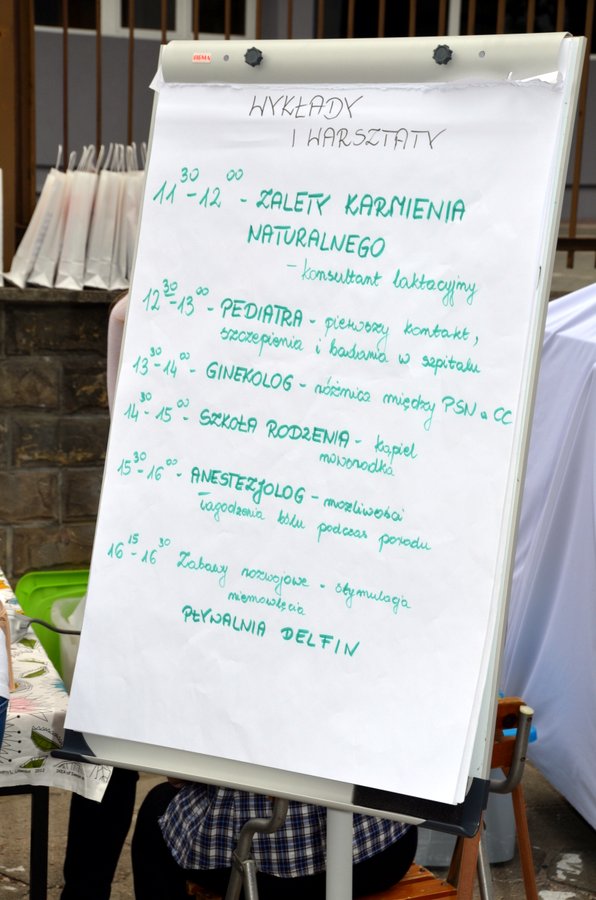 BEMA
WYKŁADY
I WARSZTATY
11³⁰-12⁰⁰ - ZALETY KARMIENIA
NATURALNEGO
- konsultant laktacyjny
12³⁰-13⁰⁰ - PEDIATRA - pierwszy kontakt,
szczepienia i badania w szpitalu
13³⁰-14⁰⁰ - GINEKOLOG - różnica między PSN a CC
14³⁰-15⁰⁰ - SZKOŁA RODZENIA - kąpiel
noworodka
15³⁰-16⁰⁰ - ANESTEZJOLOG - możliwości
łagodzenia bólu podczas porodu
16¹⁵-16³⁰ Zabawy rozwojowe - stymulacja
niemowlęcia
PŁYWALNIA DELFIN